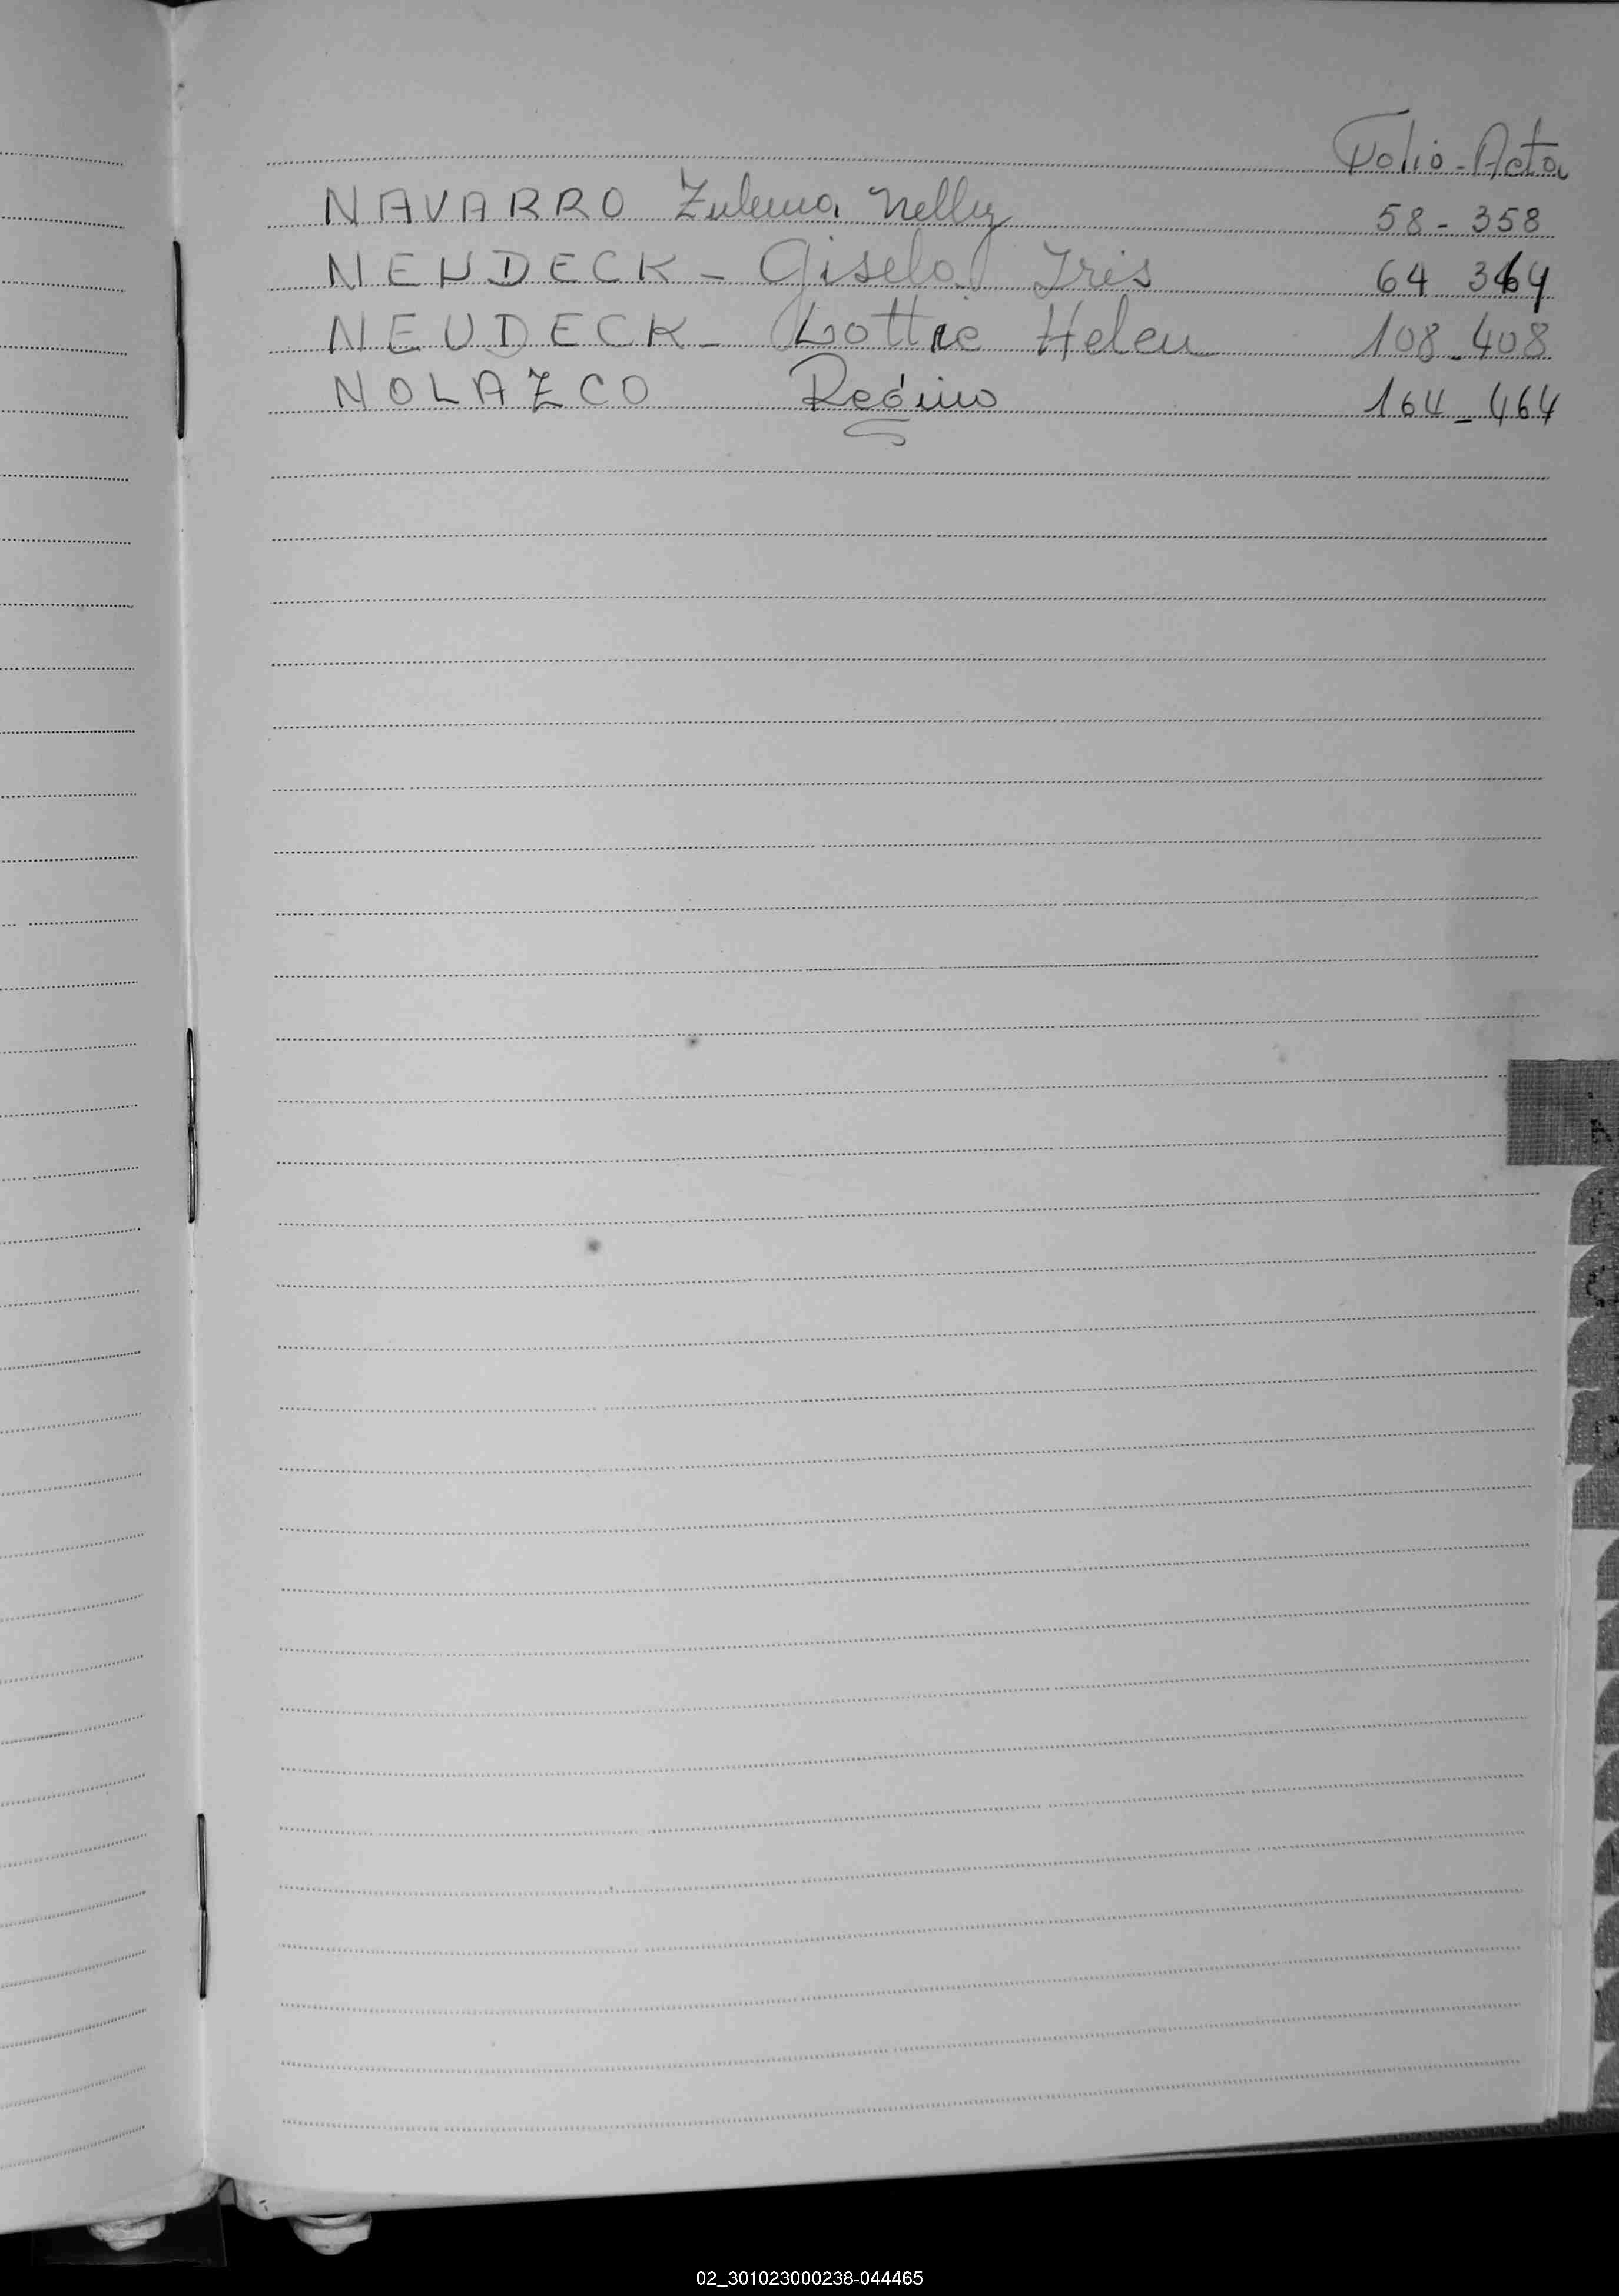 Folio - Acta
NAVARRO Zulema Nelly 58 - 358
NEUDECK - Gisela Iris 64 364
NEUDECK - Lottie Helen 108 - 408
NOLAZCO 164 - 464
02_301023000238-044465